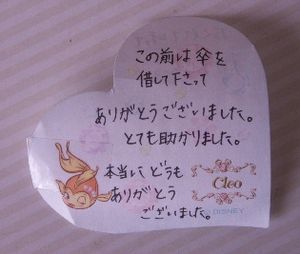 この前は傘を
借して下さって
ありがとうございました。
とても助かりました。
本当に、どうも
ありがとう
ございました。
Cleo
DISNEY